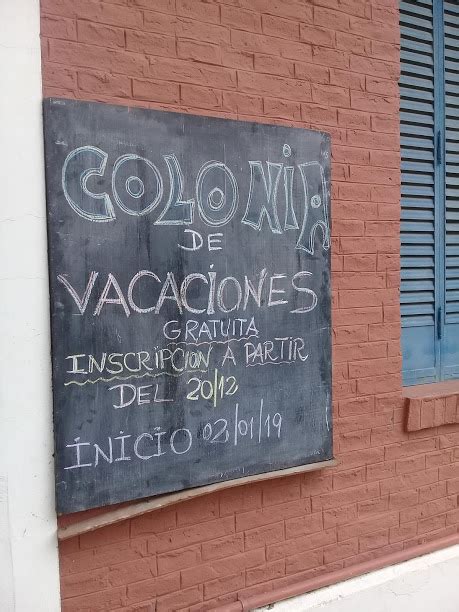 COLONIA
DE
VACACIONES
GRATUITA
INSCRIPCION A PARTIR
DEL 20/12
INICIO 02/01/19